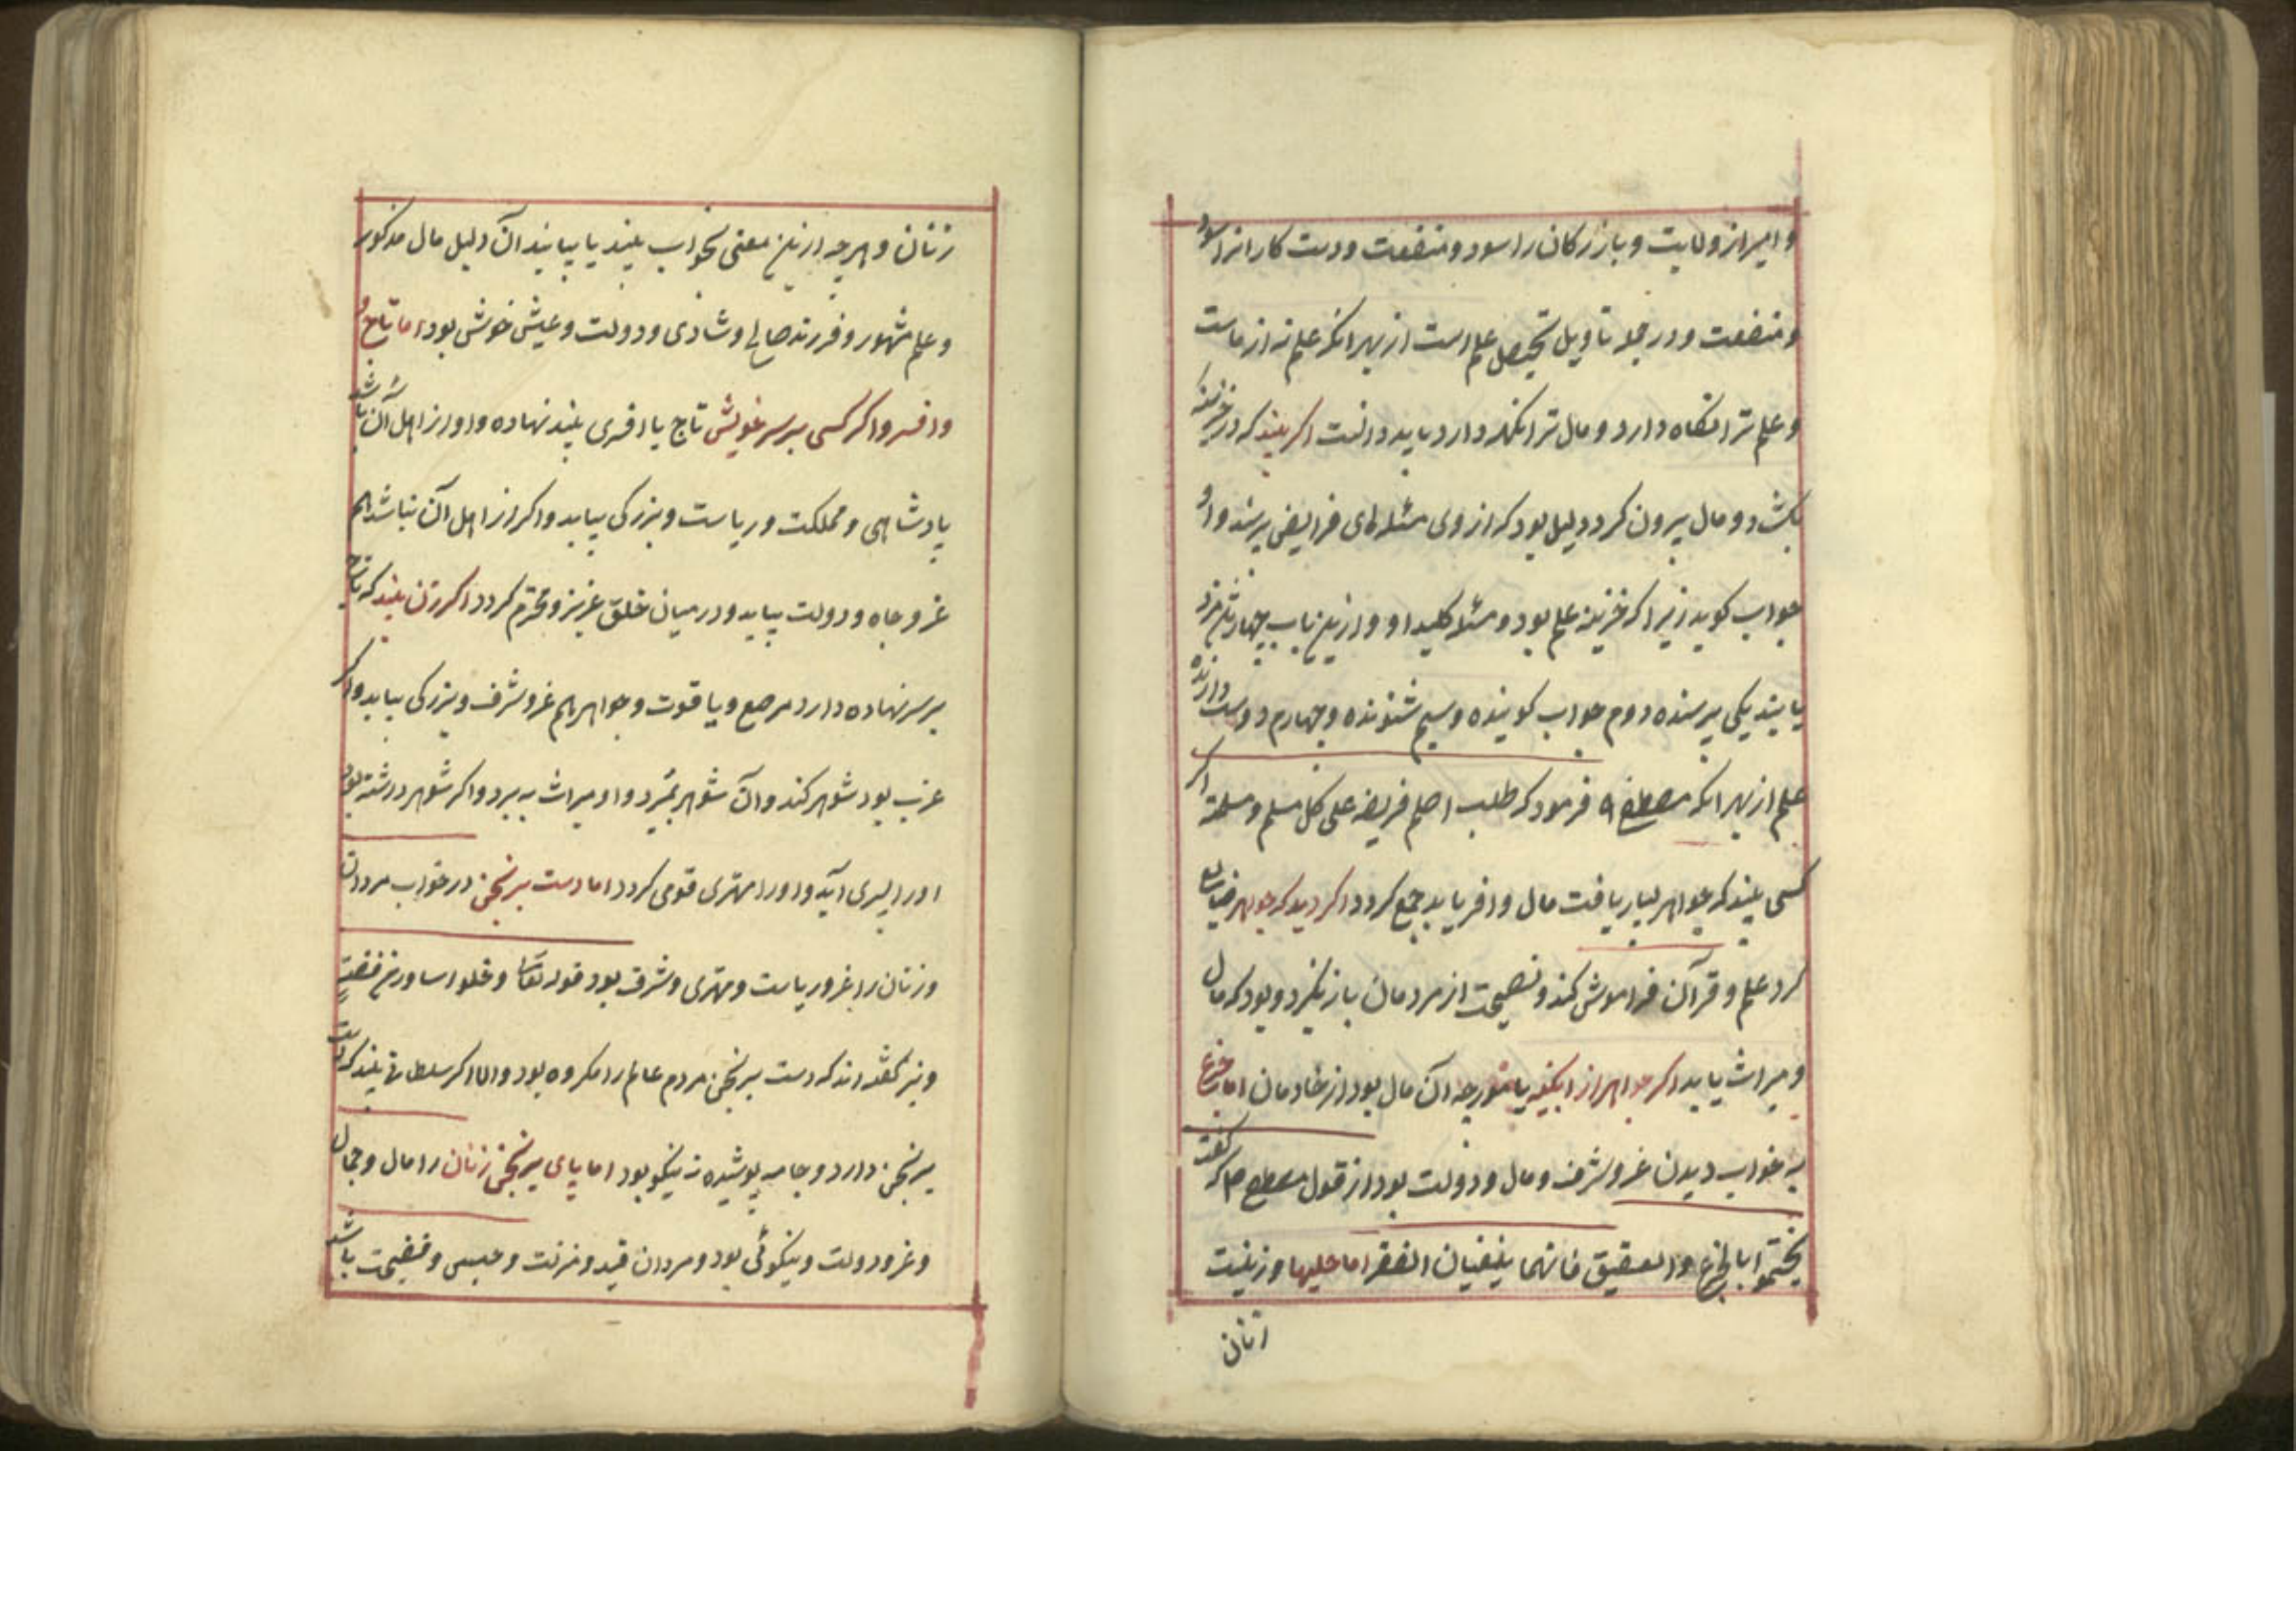 و امیر از ولایت و بازرکان را سود و منفعت و دست کارانرا سود
و منفعت و در جمله تاویل تحصیل علم است از بهر انکه علم نه از ماست
و علم ترا نکاه دارد و مال ترا نکهدارد باید دانست اکر بیند که در خزینه
بکشد و مال بیرون کرد دلیل بود که از وی مسئله‌ای فرایض پرسند و او
جواب کوید زیرا که خزینه علم بود و مسئله کلید او و ازین باب چهار تن مزد
یابند یکی پرسنده دوم جواب کوینده و سیم شنونده و چهارم دوست دارنده
علم از بهر انکه مصطفی فرمود که طلب العلم فریضه علی کل مسلم و مسلمة اکر
کسی بیند که جواهر بسیار یافت مال وافر یابد جمع کردد اکر دید که جواهر ضایع
کرد علم و قرآن فراموش کند و نصیحت از مردمان باز نکیرد و بود که مال
و میراث یابد اکر جواهر از ابکینه یا مورچه آن مال بود از خادمان اما جزع
به خواب دیدن عز و شرف و مال و دولت بود از قول مصطفی ص که گفت
تختموا بالجزع و العقیق فانهما ینفیان الفقر اما حلیها و زینت
زنان
زنان و هرچه ازین معنی بخواب بیند یا بیابند آن دلیل مال مذکور
و علم مشهور و فرزند صالح و شادی و دولت و عیش خوش بود اما تاج و
و افسر و اکر کسی بر سر خویش تاج یا افسری بیند نهاده و او از اهل آن باشد
پادشاهی و مملکت و ریاست و بزرکی بیابد و اکر از اهل آن نباشد هم
عز و جاه و دولت بیابد و در میان خلق عزیز و محترم کردد اکر زن بیند که تاج
بر سر نهاده دارد مرصع و یاقوت و جواهر هم عز و شرف و بزرکی بیابد و اکر
عزب بود شوهر کند و آن شوهر بمیرد و او میراث به برد و اکر شوهر داشته بود
او را پسری آید و او را مهتری قومی کردد اما دست برنجن در خواب مردان
و زنان را عز و ریاست و مهتری و شرف بود قوله تعالی و حلوا اساور من فضة
و نیز کفته اند که دست برنجن مردم عالم را مکروه بود و الا اکر سلطانی بیند که دست
برنجن دارد و جامه پوشیده نه نیکو بود اما پای برنجن زنان را مال و جمال
و عز و دولت و نیکوئی بود و مردان قید و منزلت و حبسی و فضیحت باشد